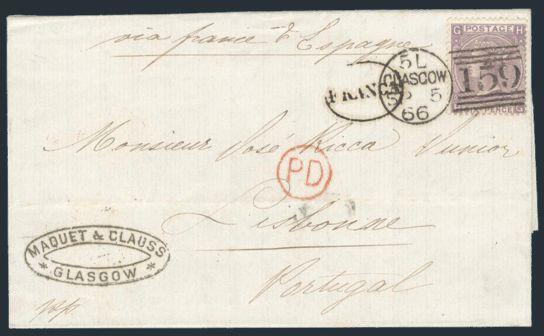 via france & Espagne
G POSTAGE H
5L
GLASGOW
SP 5
66
159
SIX PENCE
FRANCA
Monsieur José Ricca Junior
PD
Lisbonne
Portugal
MAQUET & CLAUSS
* GLASGOW *